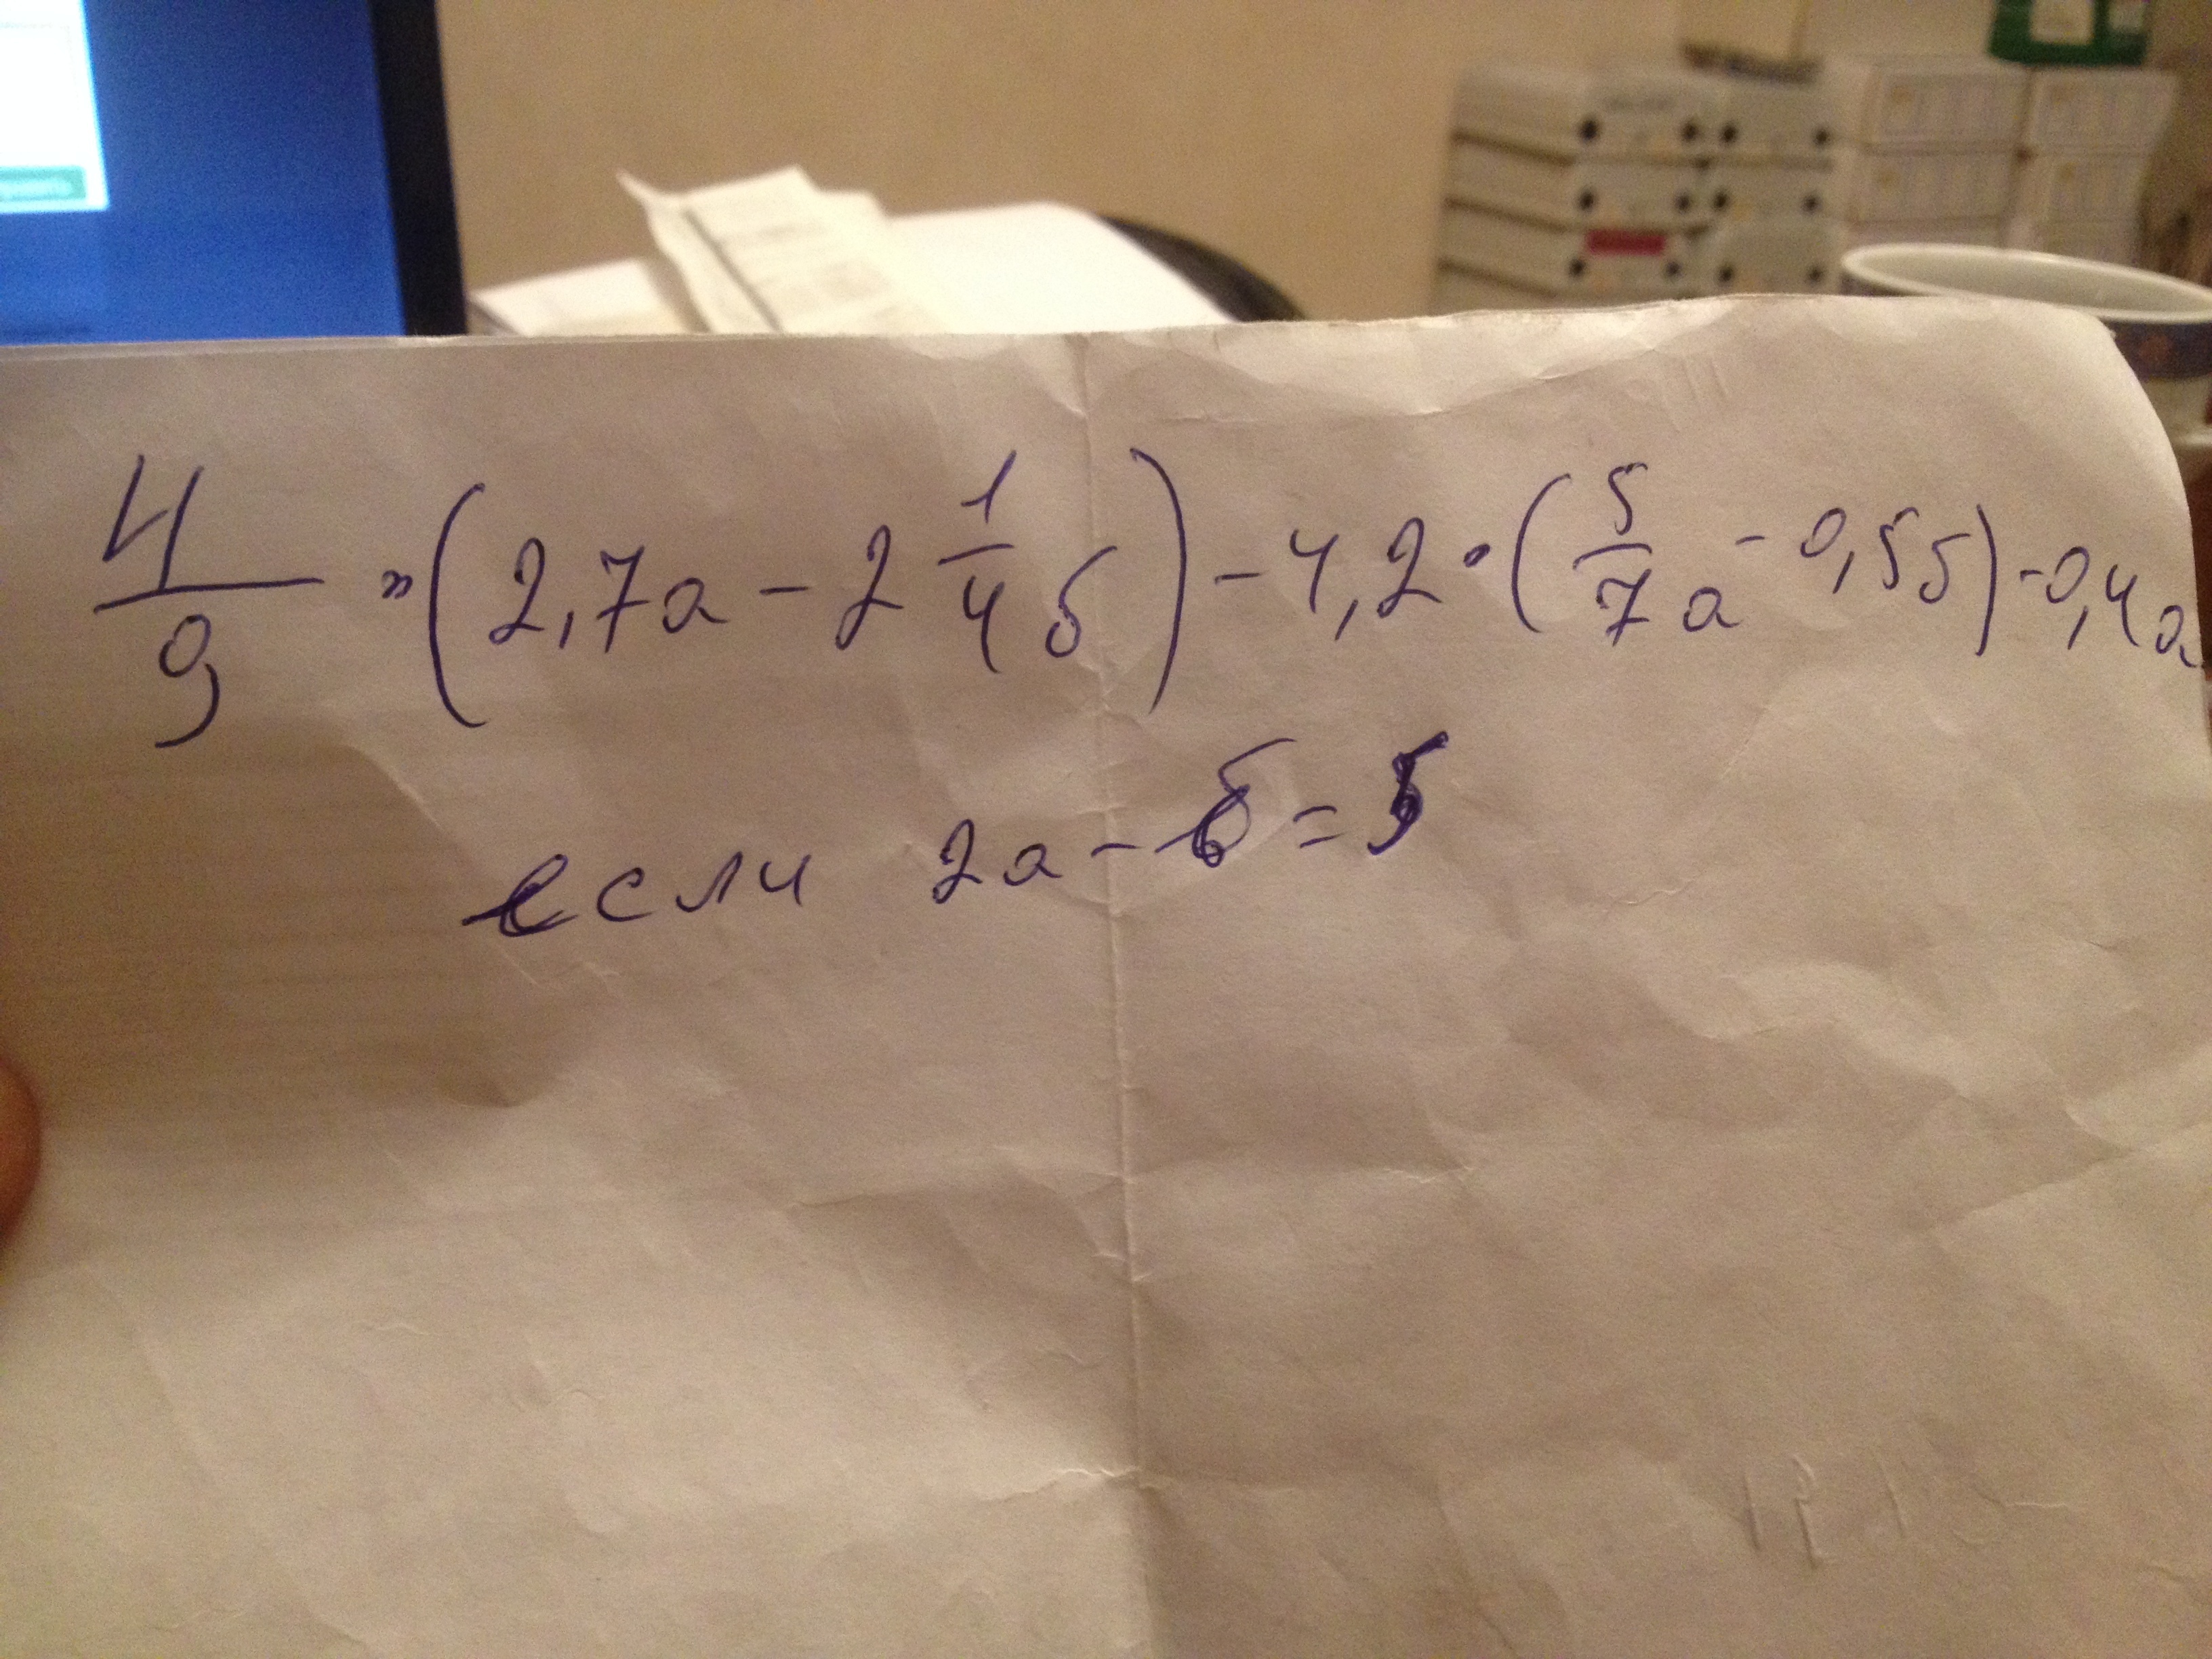 4/9 · (2,7а - 2 1/4 б) - 4,2 · (5/7 а - 0,5б) - 0,4а
если 2а - б = 5